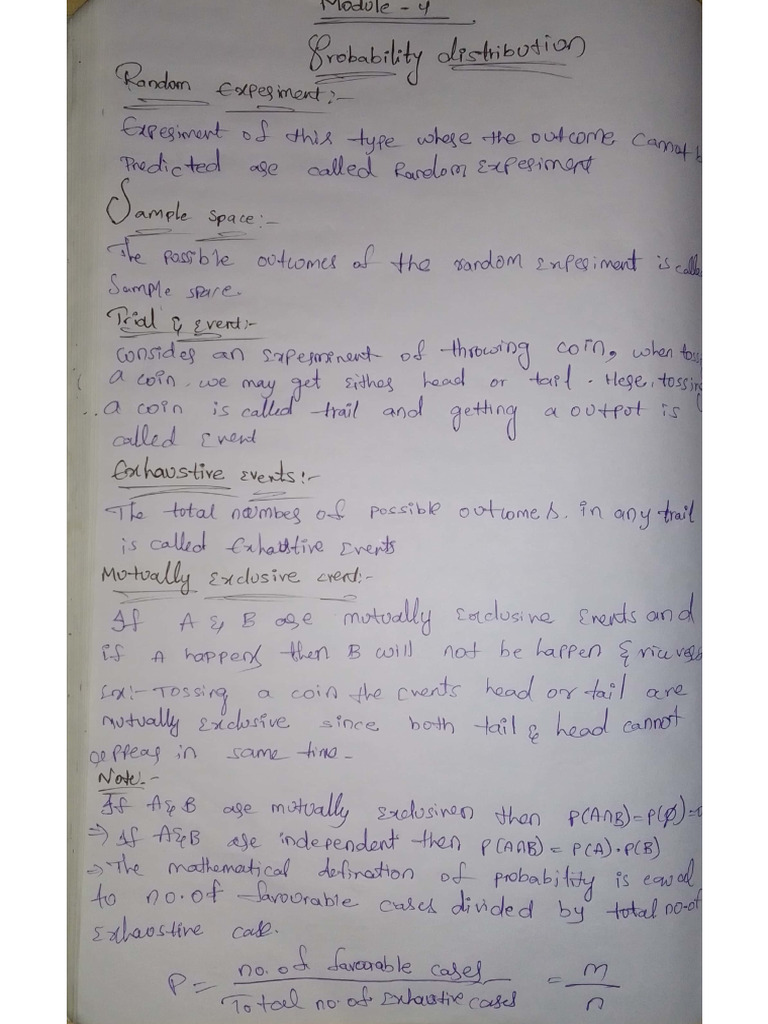 Module - 4
Probability distribution
Random Experiment:-
Experiment of this type where the outcome cannot b
Predicted are called Random Experiment
Sample space:-
The possible outcomes of the random Experiment is calle
Sample space.
Trial & Event:-
consider an Experiment of throwing coin, when toss
a coin. we may get Either head or tail. Here, tossing
a coin is called trail and getting a output is
called Event
Exhaustive Events:-
The total number of possible outcomes. in any trail
is called Exhaustive Events
Mutually Exclusive Event:-
If A & B are mutually Exclusive Events and
if A happens then B will not be happen & vice versa
Ex:- Tossing a coin the Events head or tail are
mutually Exclusive since both tail & head cannot
appear in same time-
Note:-
If A&B are mutually Exclusiven then P(A∩B)=P(ϕ)=0
⇒ If A&B are independent then P(A∩B) = P(A)·P(B)
⇒ The mathematical defination of probability is equal
to no. of favourable cases divided by total no-of
Exhaustive case.
P = no. of favorable cases / Total no. of Exhaustive cases = m / n